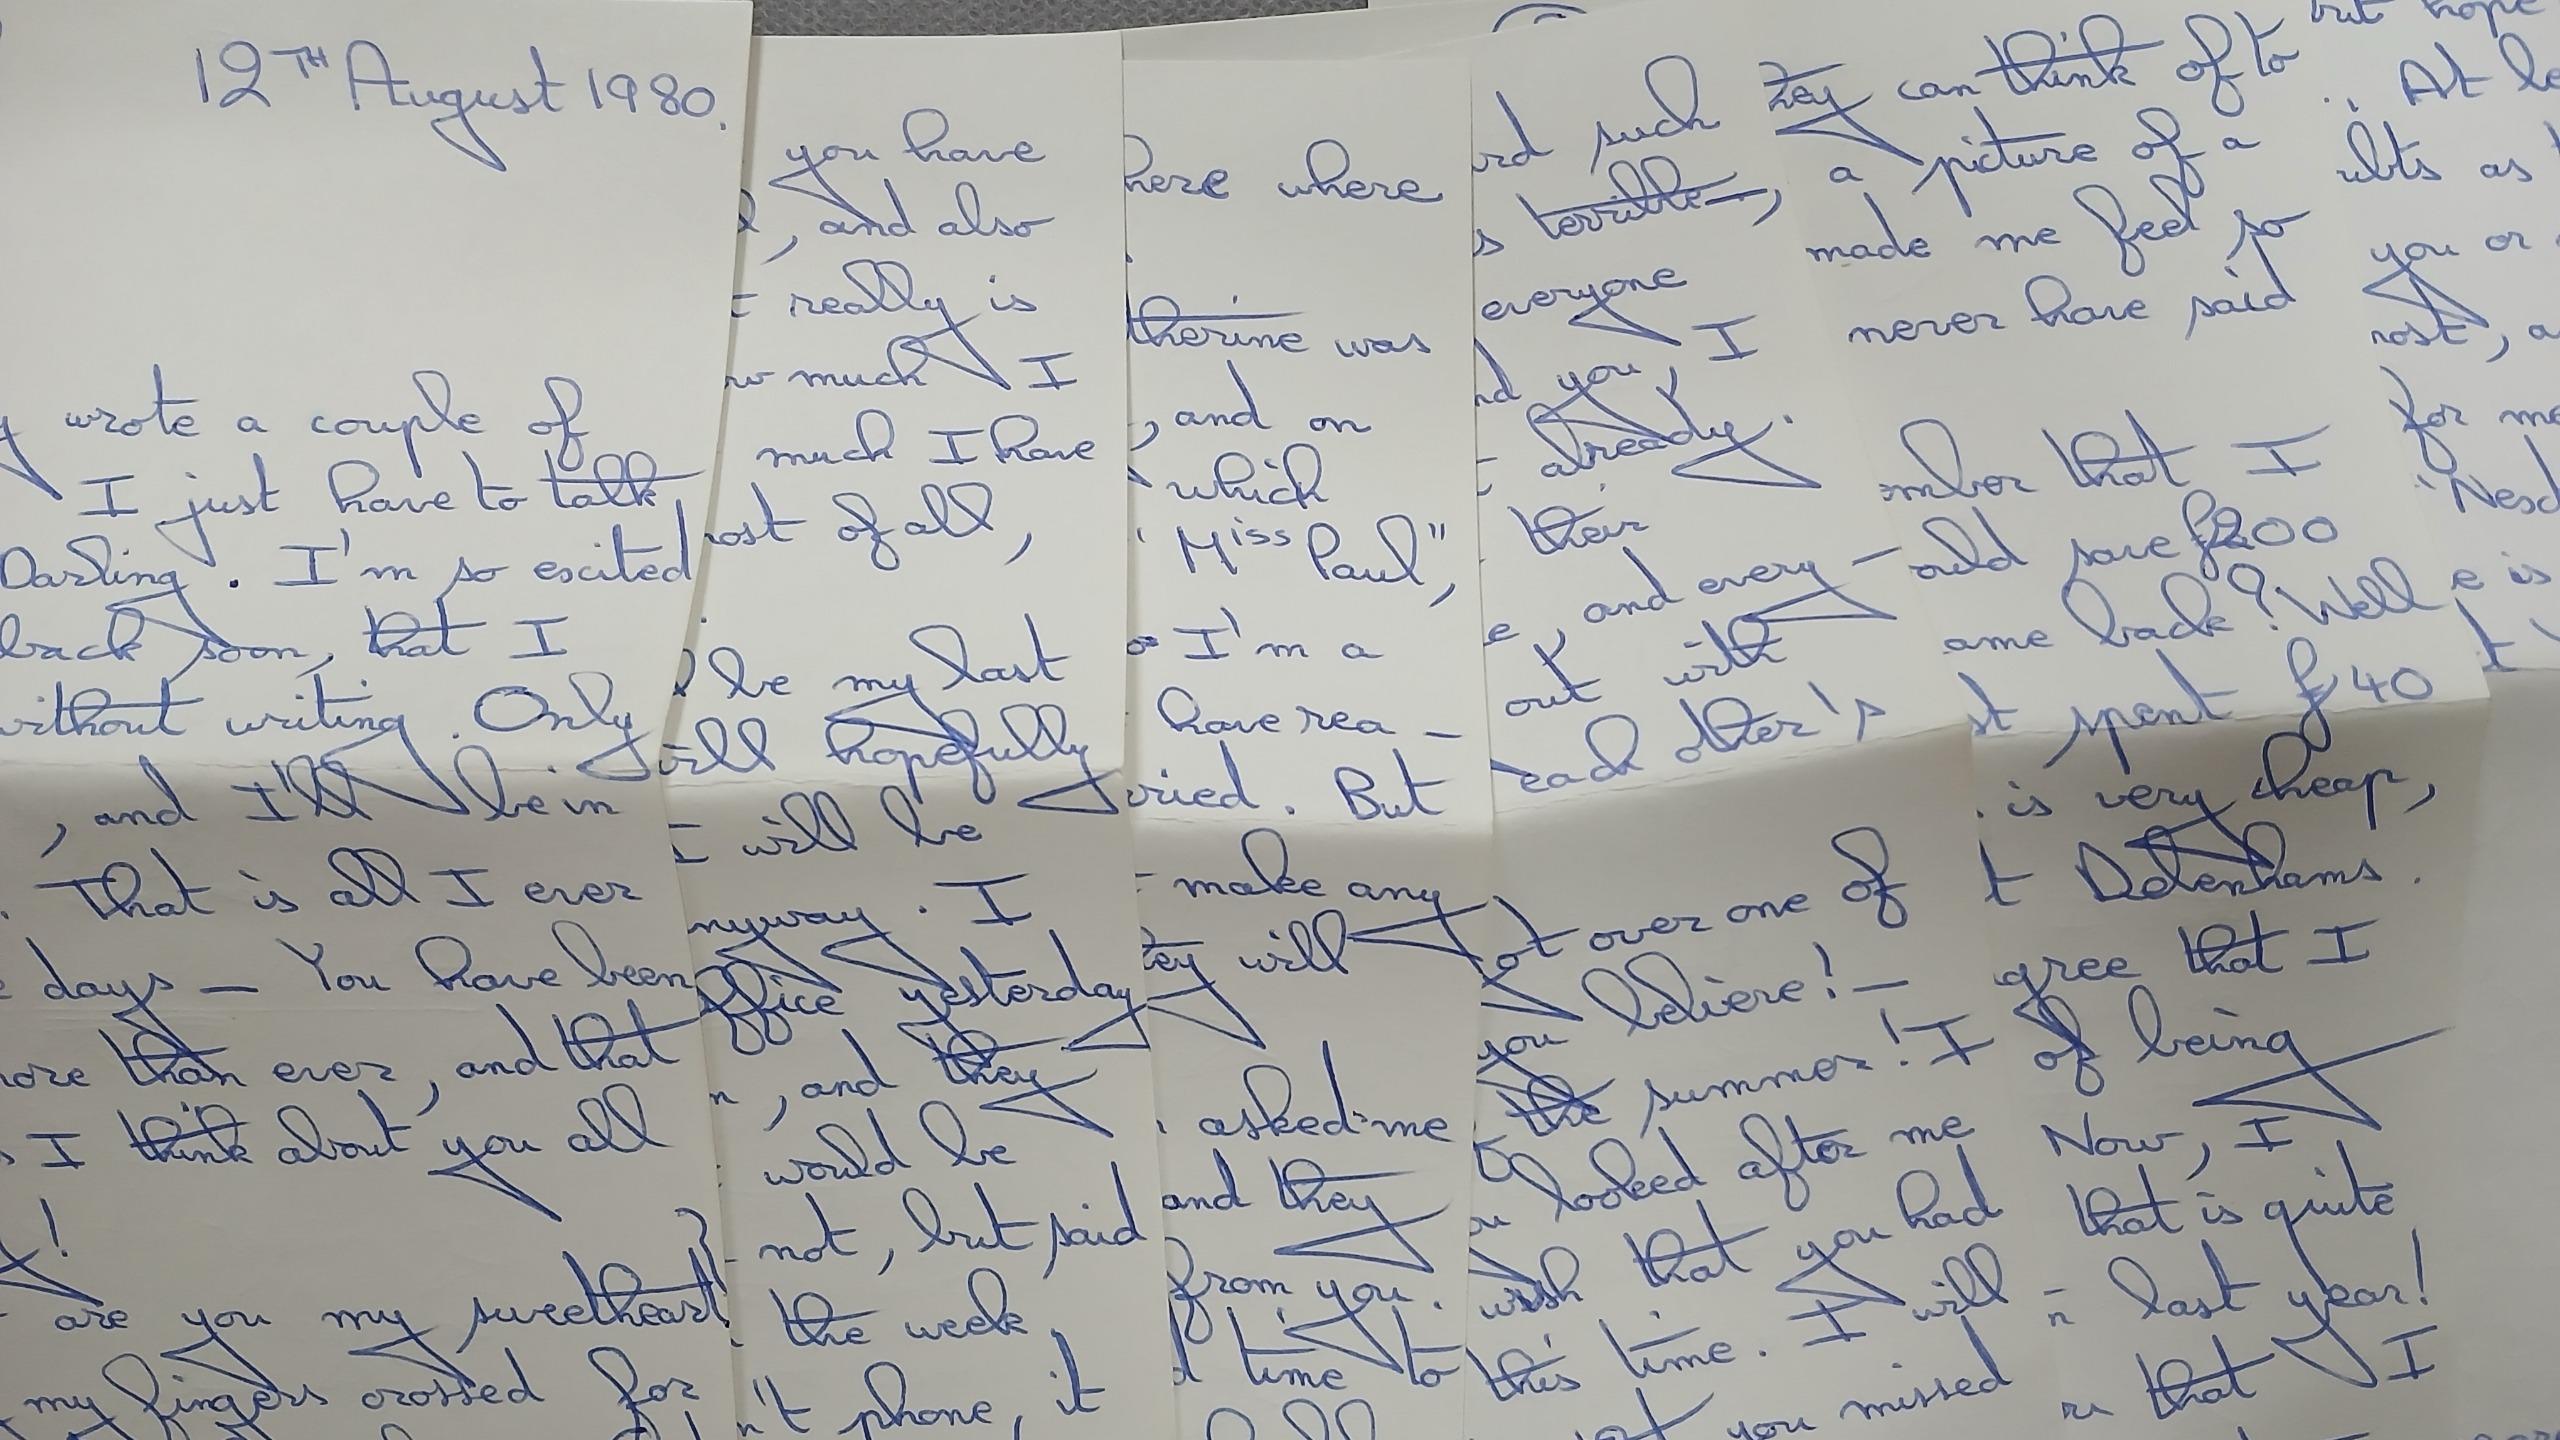 12TH August 1980.
wrote a couple of
I just have to talk
Darling. I'm so escited
back soon, that I
without writing. Only
, and I'll be in
. That is all I ever
days — You have been
ore than ever, and that
I think about you all
!
are you my sweetheart?
my fingers crossed for
you have
, and also
really is
much I
much I have
ost of all,
be my last
will hopefully
I will be
nyway. I
ffice yesterday
, and they
would be
not, but said
the week,
n't phone, it
here where
therine was
, and on
which
"Miss Paul",
I'm a
have rea-
ried. But
make any
ey will
asked me
and they
from you.
time to
rd such
s terrible,
everyone
nd you, I
already.
their
e, and every-
out with
each other's
ot over one of
you believe! —
the summer! I
looked after me
wish that you had
this time. I will
you missed
hey can think of to
a picture of a
made me feel so
never have said
mber that I
ould save £200
ame back? Well
st spent £40
. is very cheap,
t Debenhams.
gree that I
of being
Now, I
that is quite
n last year!
that I
but hope
. At le
ubts as
you or
ost, a
for me
'Nesc
e is
t